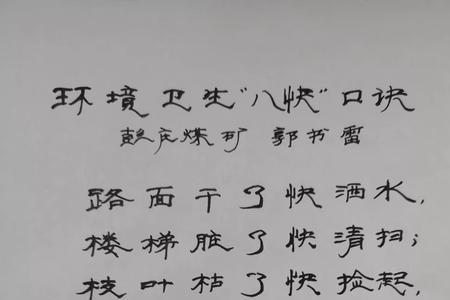 环境卫生“八快”口诀
彭庄煤矿 郭书雷
路面干了快洒水，
楼梯脏了快清扫；
枝叶枯了快捡起，